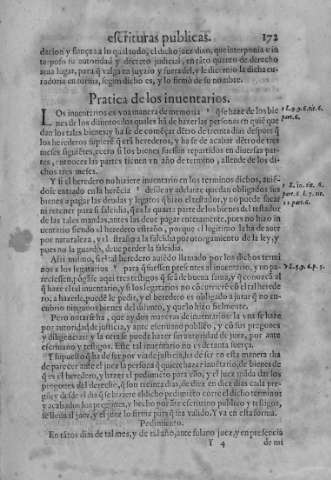 escrituras publicas. 172
dacion y fiança a lo qual todo, el dicho juez dixo, que interponia e in
terpuso su autoridad y decreto judicial, en tãto quãto de derecho
auia lugar, para q̃ valga en juyzio y fuera del, y le dicernio la dicha cu
radoria en forma, segun dicho es, y lo firmò de su nombre.
Pratica de los inuentarios.
LOs inuentarios es vna manera de memoria q̃ se haze de los bie
nes de los difuntos de los quales hã de hazer las personas en quiẽ que
dan los tales bienes, y ha se de começar dẽtro de treinta dias despues q̃
los herederos supierẽ q̃ erã herederos, y ha se de acabar dẽtro de tres
meses siguiẽtes, excepto si los bienes fuessen repartidos en diuersas par
tes, entonces las partes tienen vn año de termino, allende de los di-
chos tres meses.
Y si el heredero no hiziere inuentario en los terminos dichos, auiẽ-
dose entrado en la herẽcia desde ay adelante quedan obligados sus
bienes a pagar las deudas y legatos q̃ hizo el testador, y no puede sacar
ni retener para si falcidia, q̃ es la quarta parte de los bienes del testador
de las tales mandas, antes las deue pagar enteramente, pues no hizo in
uentario siendo el heredero estraño, porque el legitimo la ha de auer
por naturaleza, y el estraño la falcidia por otorgamiento de la ley, y
pues no la guardò, deue perder la falcidia.
Assi mismo, si el tal heredero auiẽdo llamado por los dichos termi
nos a los legatarios para q̃ fuessen presentes al inuentario, y no pa-
reciessen, põgase aqui tres testigos q̃ seã de buena fama, y q̃ conozcã al
q̃ haze el tal inuentario, y si los legatarios no cõcurrierẽ cõ el tal herede
ro, a hazerle, puede le pedir, y el heredero es obligado a jurar q̃ no en-
cubrio ningunos bienes del difunto, y que lo hizo fielmente.
Pero notarse ha, que ay dos maneras de inuentarios: la vna se haze
por autoridad de justicia, y ante escriuano publico, y cõ sus pregones
y diligencias: y la otra se puede hazer sin autoridad de juez, por ante
escriuano y testigos. Este tal inuentario no es de tanta fuerça.
Y supuesto q̃ ha de ser por via de justicia, ha de ser en esta manera: ha
de parecer ante el juez la persona q̃ quiere hazer inuẽtario, de bienes de
q̃ es el heredero, y hazer el pedimiẽto para ello, y el juez mãda dar los
pregones del derecho, q̃ son treinta dias, de diez en diez dias cada pre-
gõ, y desde el dia q̃ se haze el dicho pedimiẽto corre el dicho termino
y acabados los pregones, y hecho por ãte escriuano publico y testigos,
se lleua al juez, y el juez lo firma para q̃ sea valido. Y va en esta forma.
Pedimiento.
En tãtos dias de tal mes, y de tal año, ante fulano juez, y en presencia
Y 4 de mi